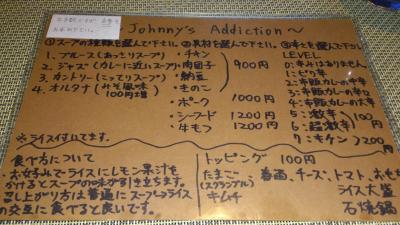 Johnny's Addiction～
①スープの種類を選んで下さい。 ②具材を選んで下さい。 ③辛さを選んで下さい
1. ブルース（あっさりスープ）
2. ジャズ（カレーに近いスープ）
3. カントリー（こってりスープ）
4. オルタナ（みそ風味）
100円増
・チキン
・肉団子
・納豆
・きのこ
900円
・ポーク 1000円
・シーフード 1200円
・牛もつ 1200円
LEVEL
0:辛みはありません
1:ピリ辛
2:市販カレーの中辛
3:市販カレーの辛口
4:市販カレーの大辛
5:激辛
6:超激辛
100円
7:キケン 200円
※ライス付いてます。
食べ方について
お好みでライスにレモン果汁を
かけるとスープの味が引き立ちます。
召し上がり方は普通にスープ→ライス
の交互に食べると良いです。
トッピング 100円
たまご、春雨、チーズ、トマト、おもち
（スクランブル） ライス大盛
キムチ 石焼鍋